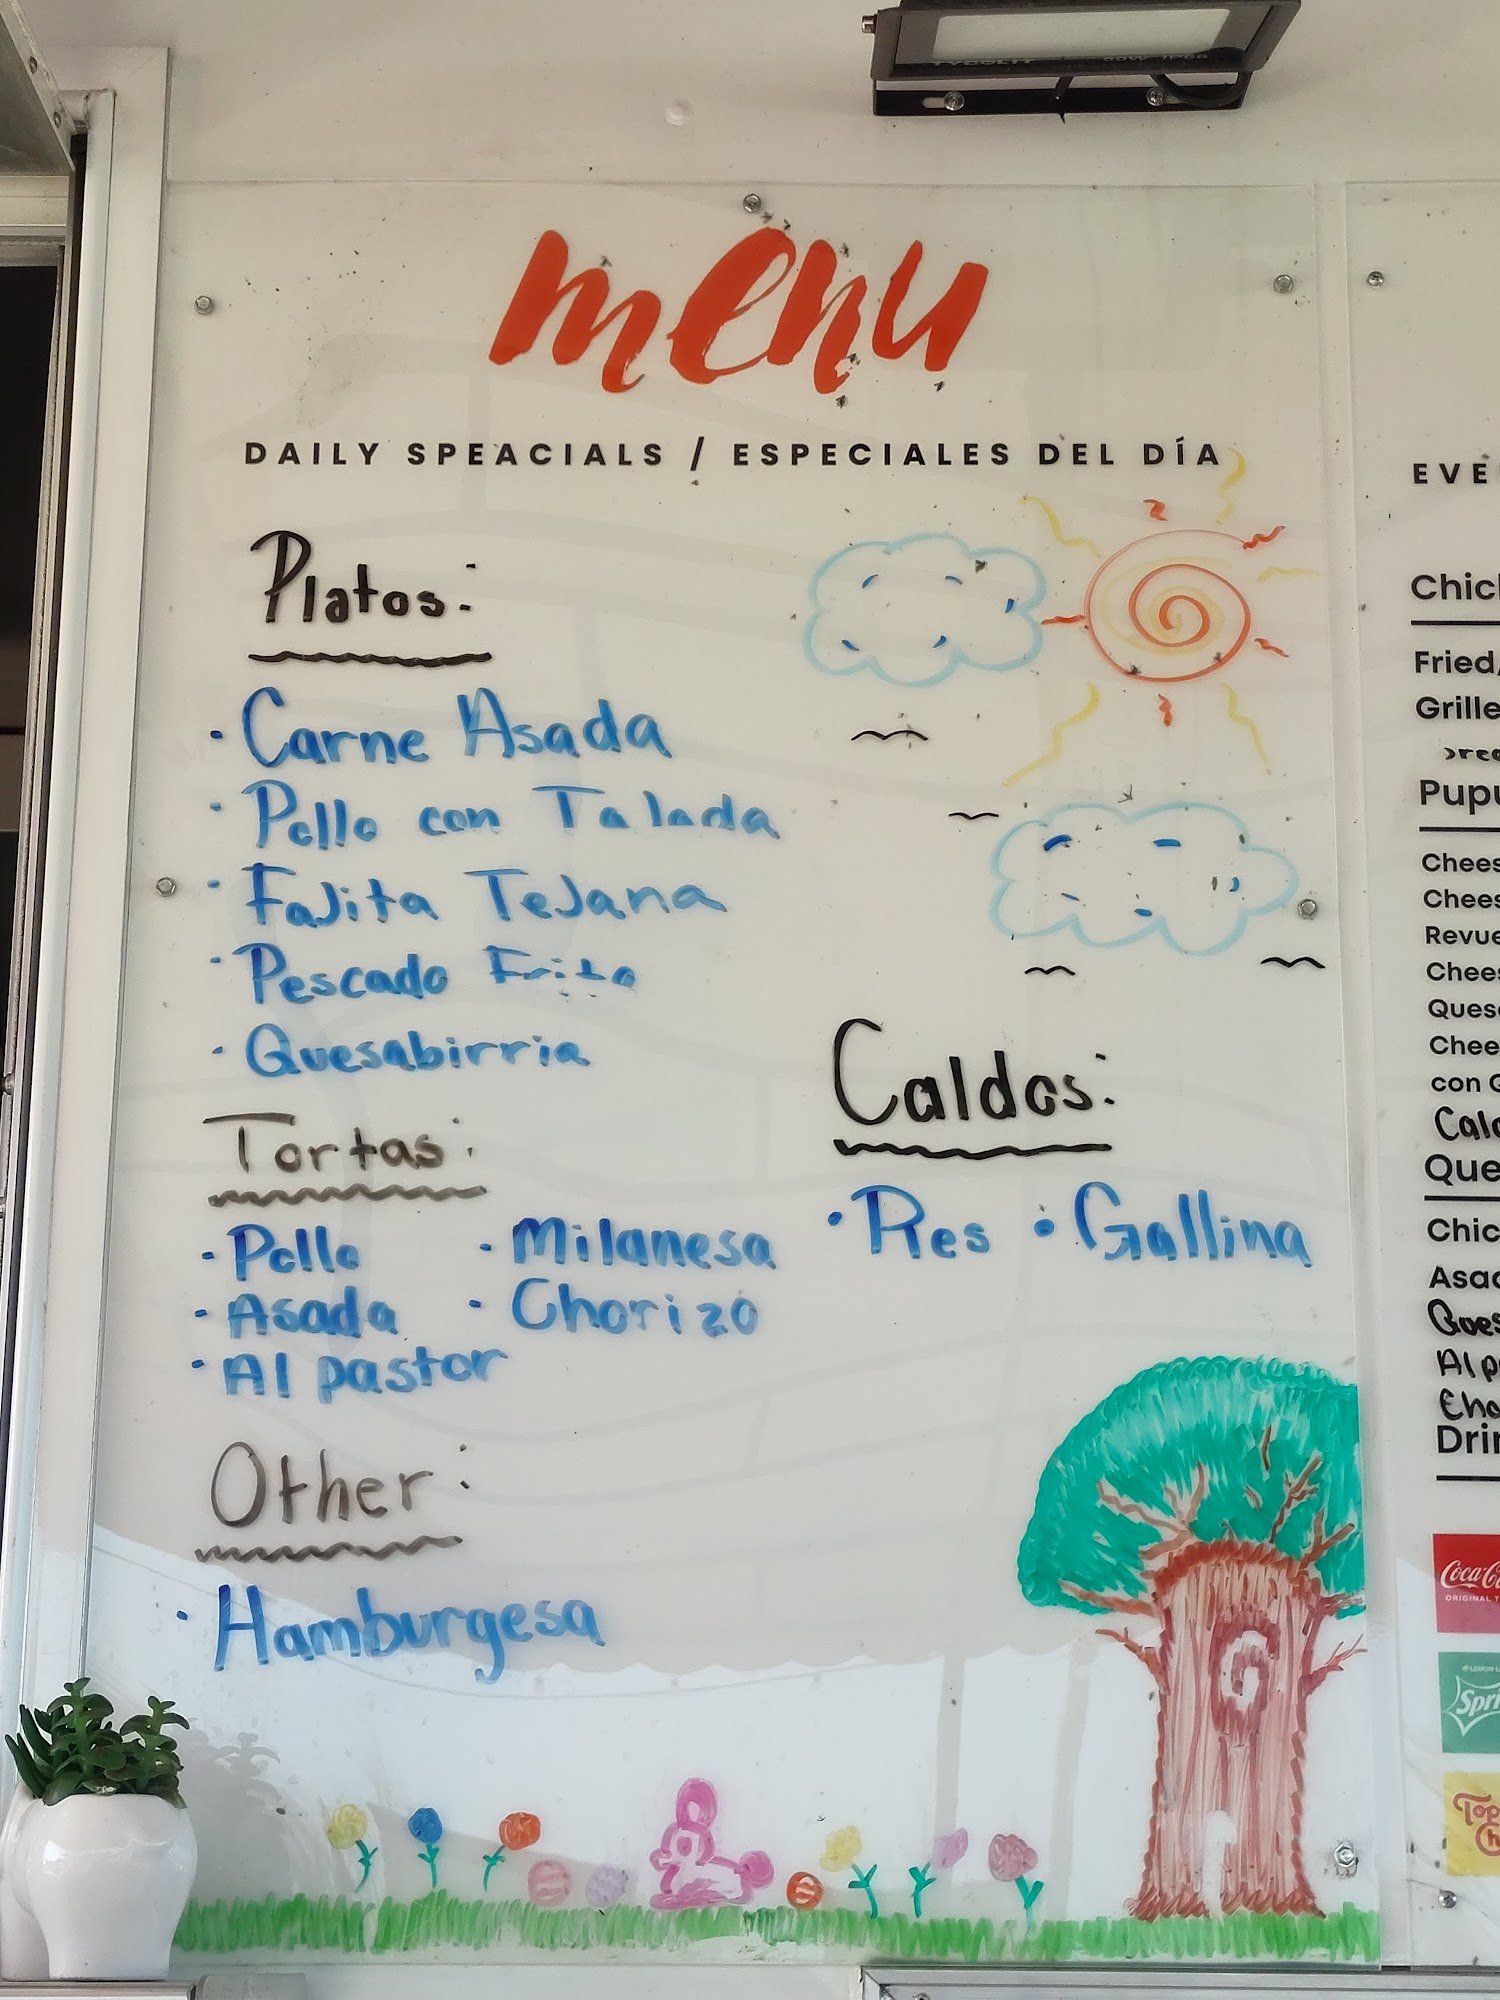 menu
DAILY SPEACIALS / ESPECIALES DEL DÍA
Platos:
· Carne Asada
· Pollo con Talada
· Fajita Tejana
· Pescado Frito
· Quesabirria
Tortas:
· Pollo · Milanesa
· Asada · Chorizo
· Al pastor
Other:
· Hamburgesa
Caldos:
· Res · Gallina
EVE
Chic
Fried/
Grille
Pupu
Chees
Chees
Revue
Chees
Ques
Chee
con
Cald
Que
Chic
Asad
Ques
Al p
Cho
Drin
Coca-Co
ORIGINAL T
Spri
Top
Ch